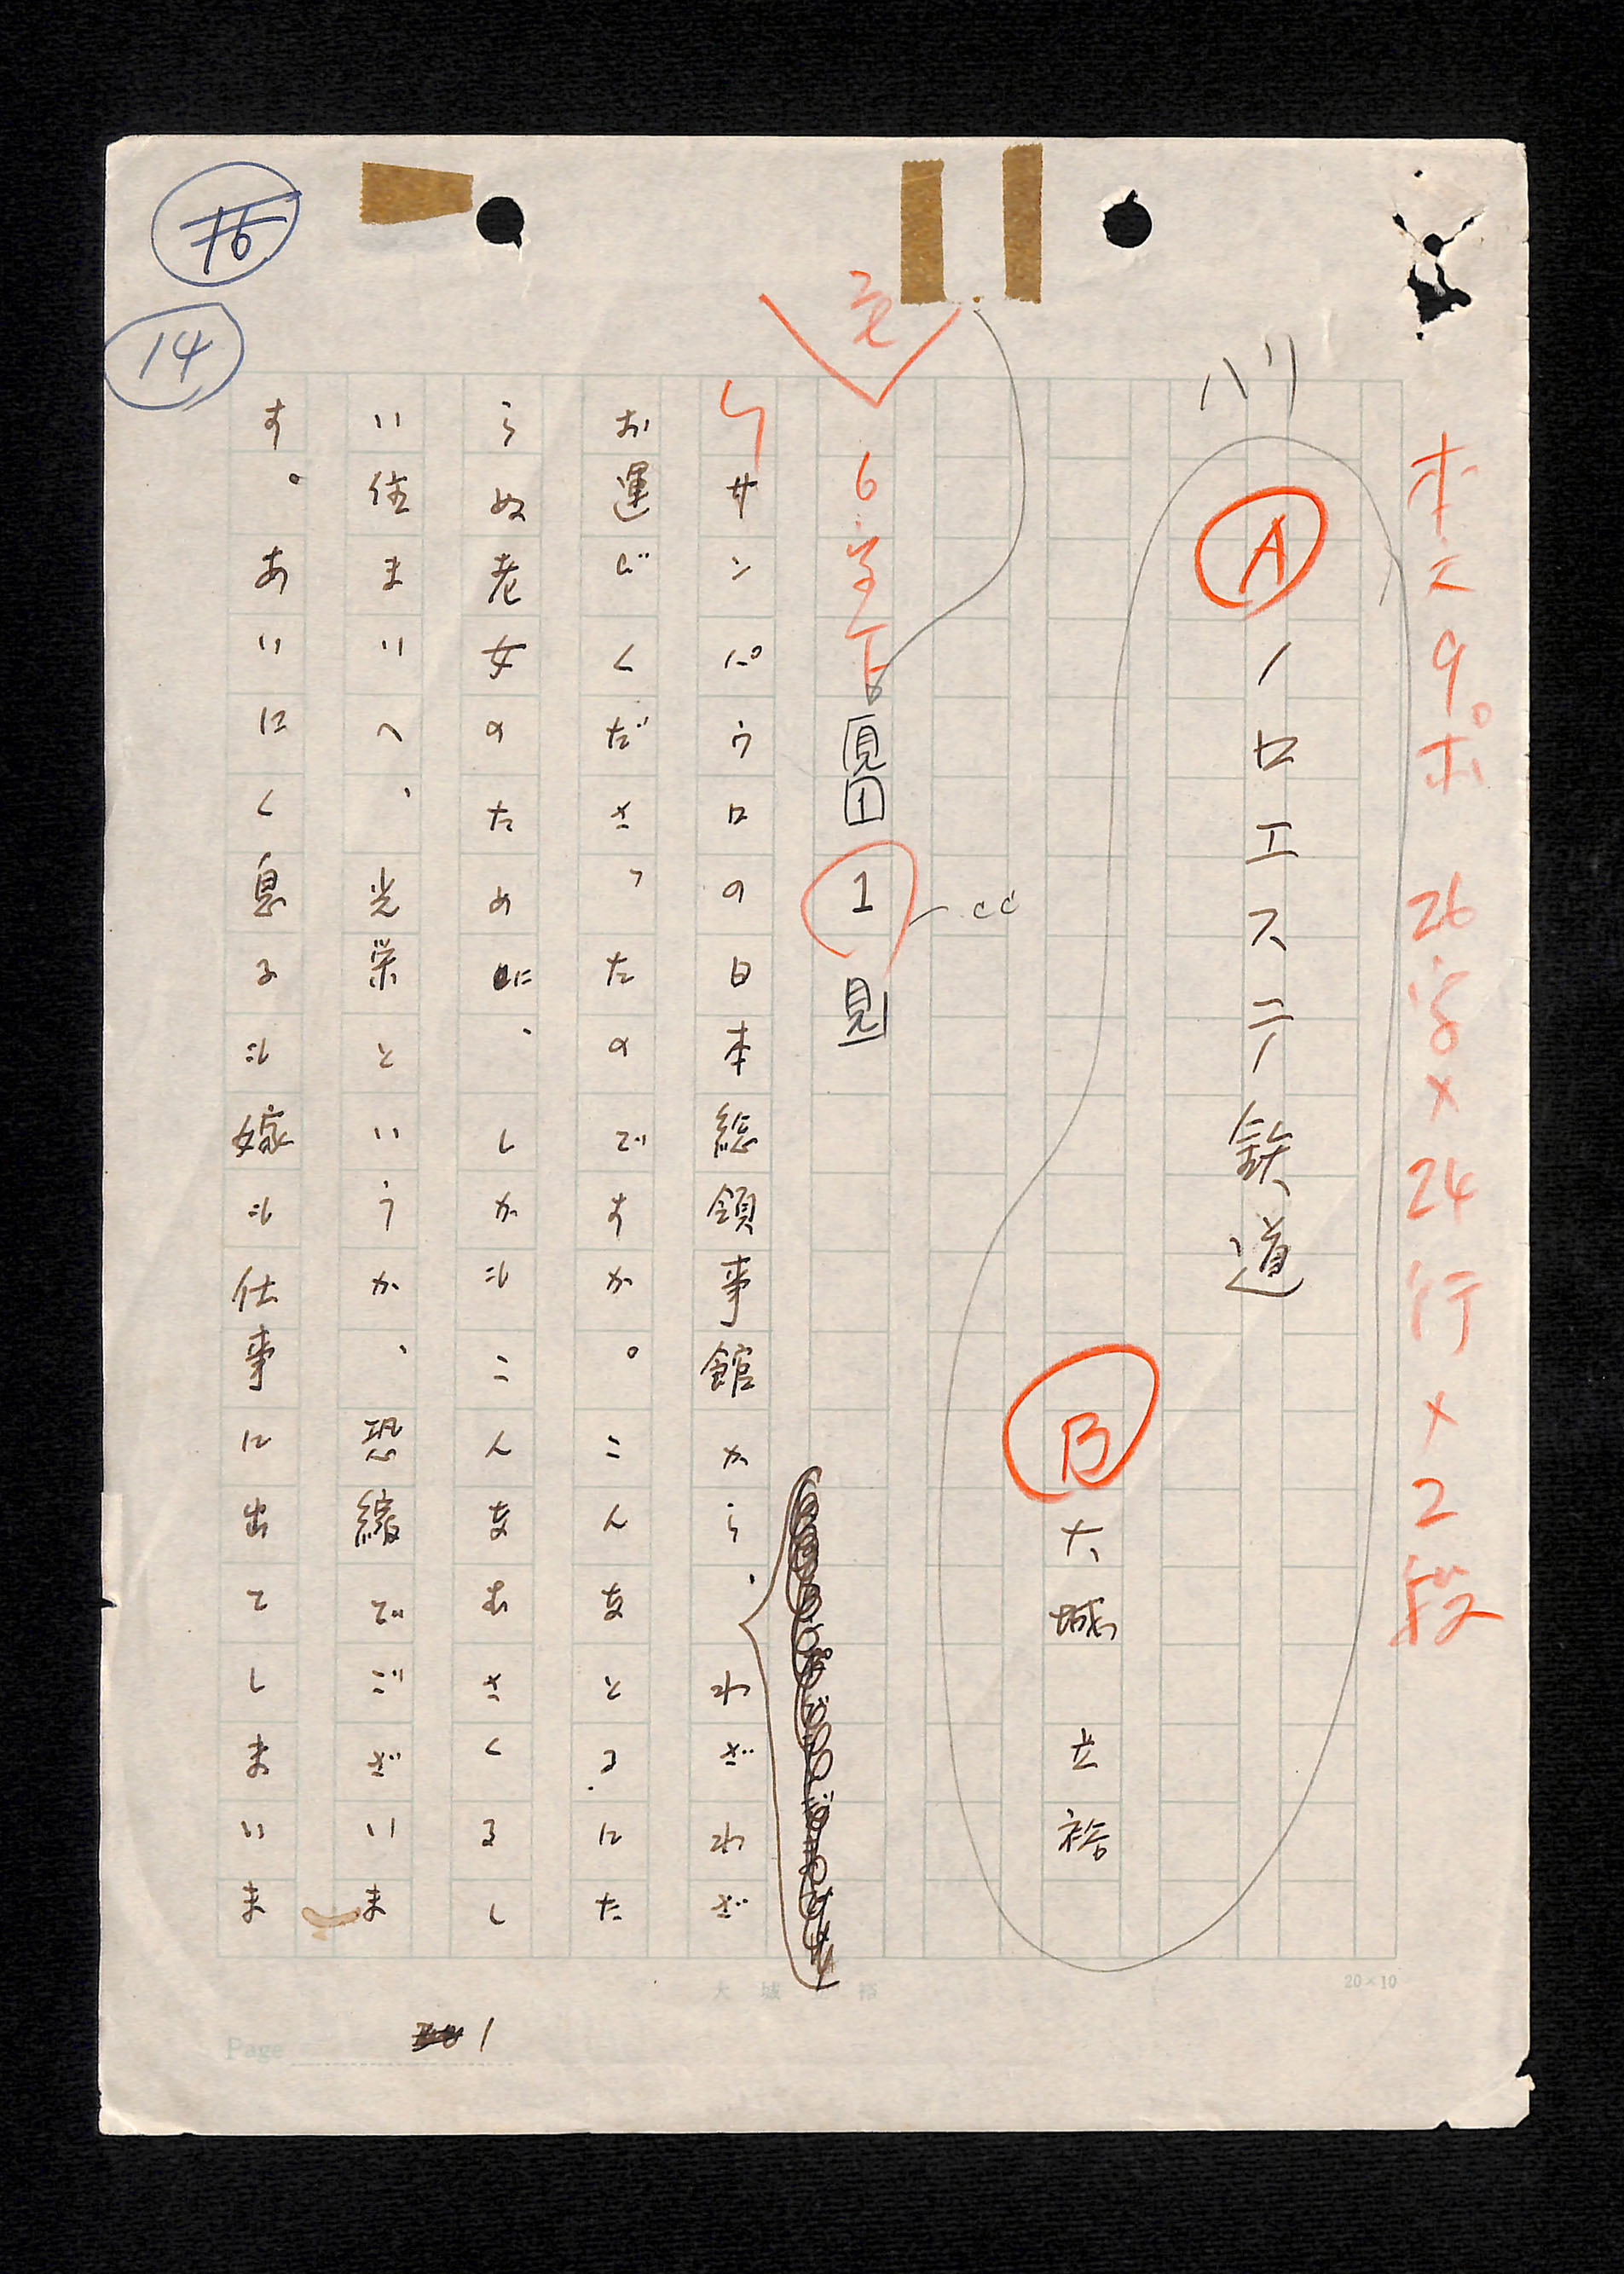 本文9ポ 26字×24行×2段
A
ノロエステ鉄道
B
大城 立裕
6字下
1
サンパウロの日本総領事館から、わざわざ
お運びくださったのですか。こんなとるにた
らぬ老女のために、しかもこんなむさくるし
い住まいへ、光栄というか、恐縮でございま
す。あいにく息子も嫁も仕事に出てしまいま
16
14
大城立裕
20×10
Page
1